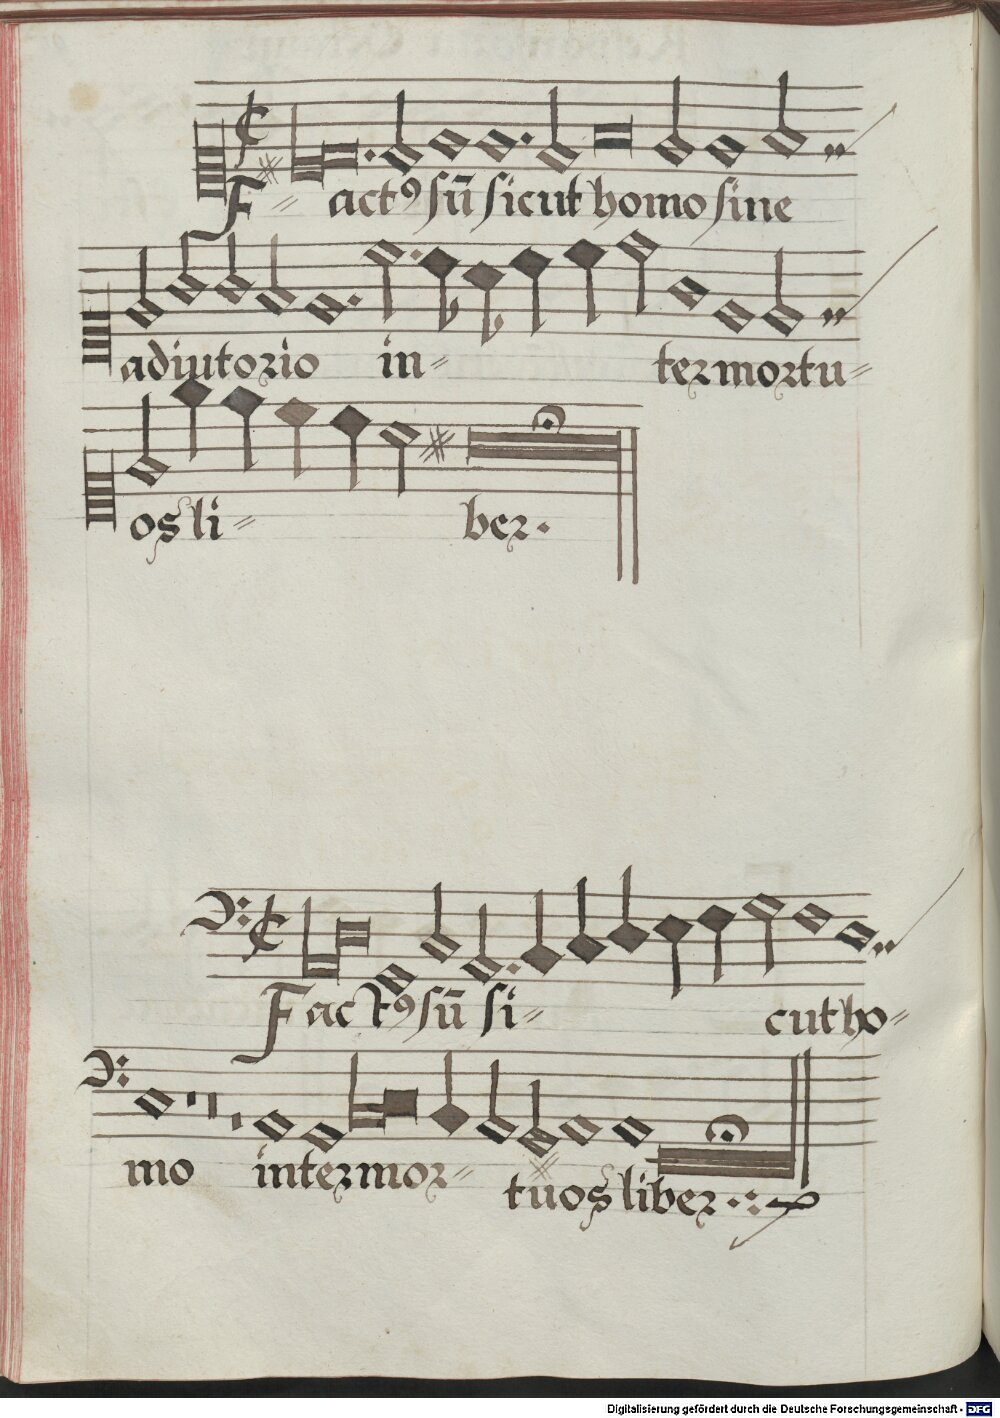 Fact⁹ sū sicut homo sine
adiutorio in= ter mortu=
os li= ber.
Fact⁹ sū si= cut ho=
mo inter mor= tuos liber.
Digitalisierung gefördert durch die Deutsche Forschungsgemeinschaft - DFG